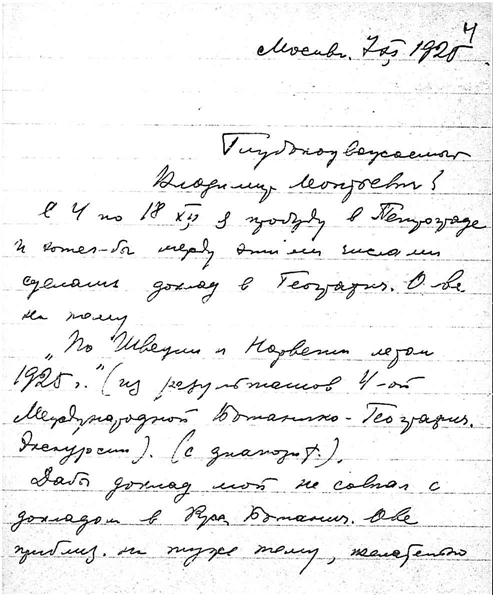 4
Москва. 7 XI 1925
Глубокоуважаемый
Владимир Леонтьевич!
С 4 по 18 XII я пробуду в Петрограде
и хотел-бы между этими числами
сделать доклад в Географич. О-ве
на тему
"По Швеции и Норвегии летом
1925 г." (из результатов 4-ой
Международной Ботанико-Географич.
Экскурсии). (с диапозит.).
Дабы доклад мой не совпал с
докладом в Русс. Ботанич. О-ве
приблиз. на ту же тему, желательно